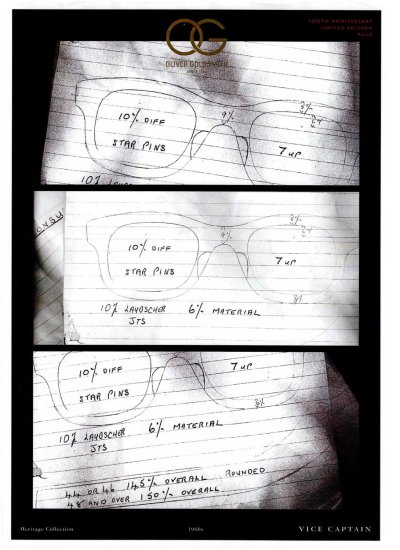 OG
OLIVER GOLDSMITH
100TH ANNIVERSARY
LIMITED EDITION
10% DIFF
STAR PINS
9%
7 UP
10% DIFF
STAR PINS
9%
7 UP
10% LAYDSCHER
JTS
6% MATERIAL
10% DIFF
STAR PINS
7 UP
10% LAYDSCHER
JTS
6% MATERIAL
44 OR 46 145% OVERALL ROUNDED
48 AND OVER 150% OVERALL
Heritage Collection
1960s
VICE CAPTAIN